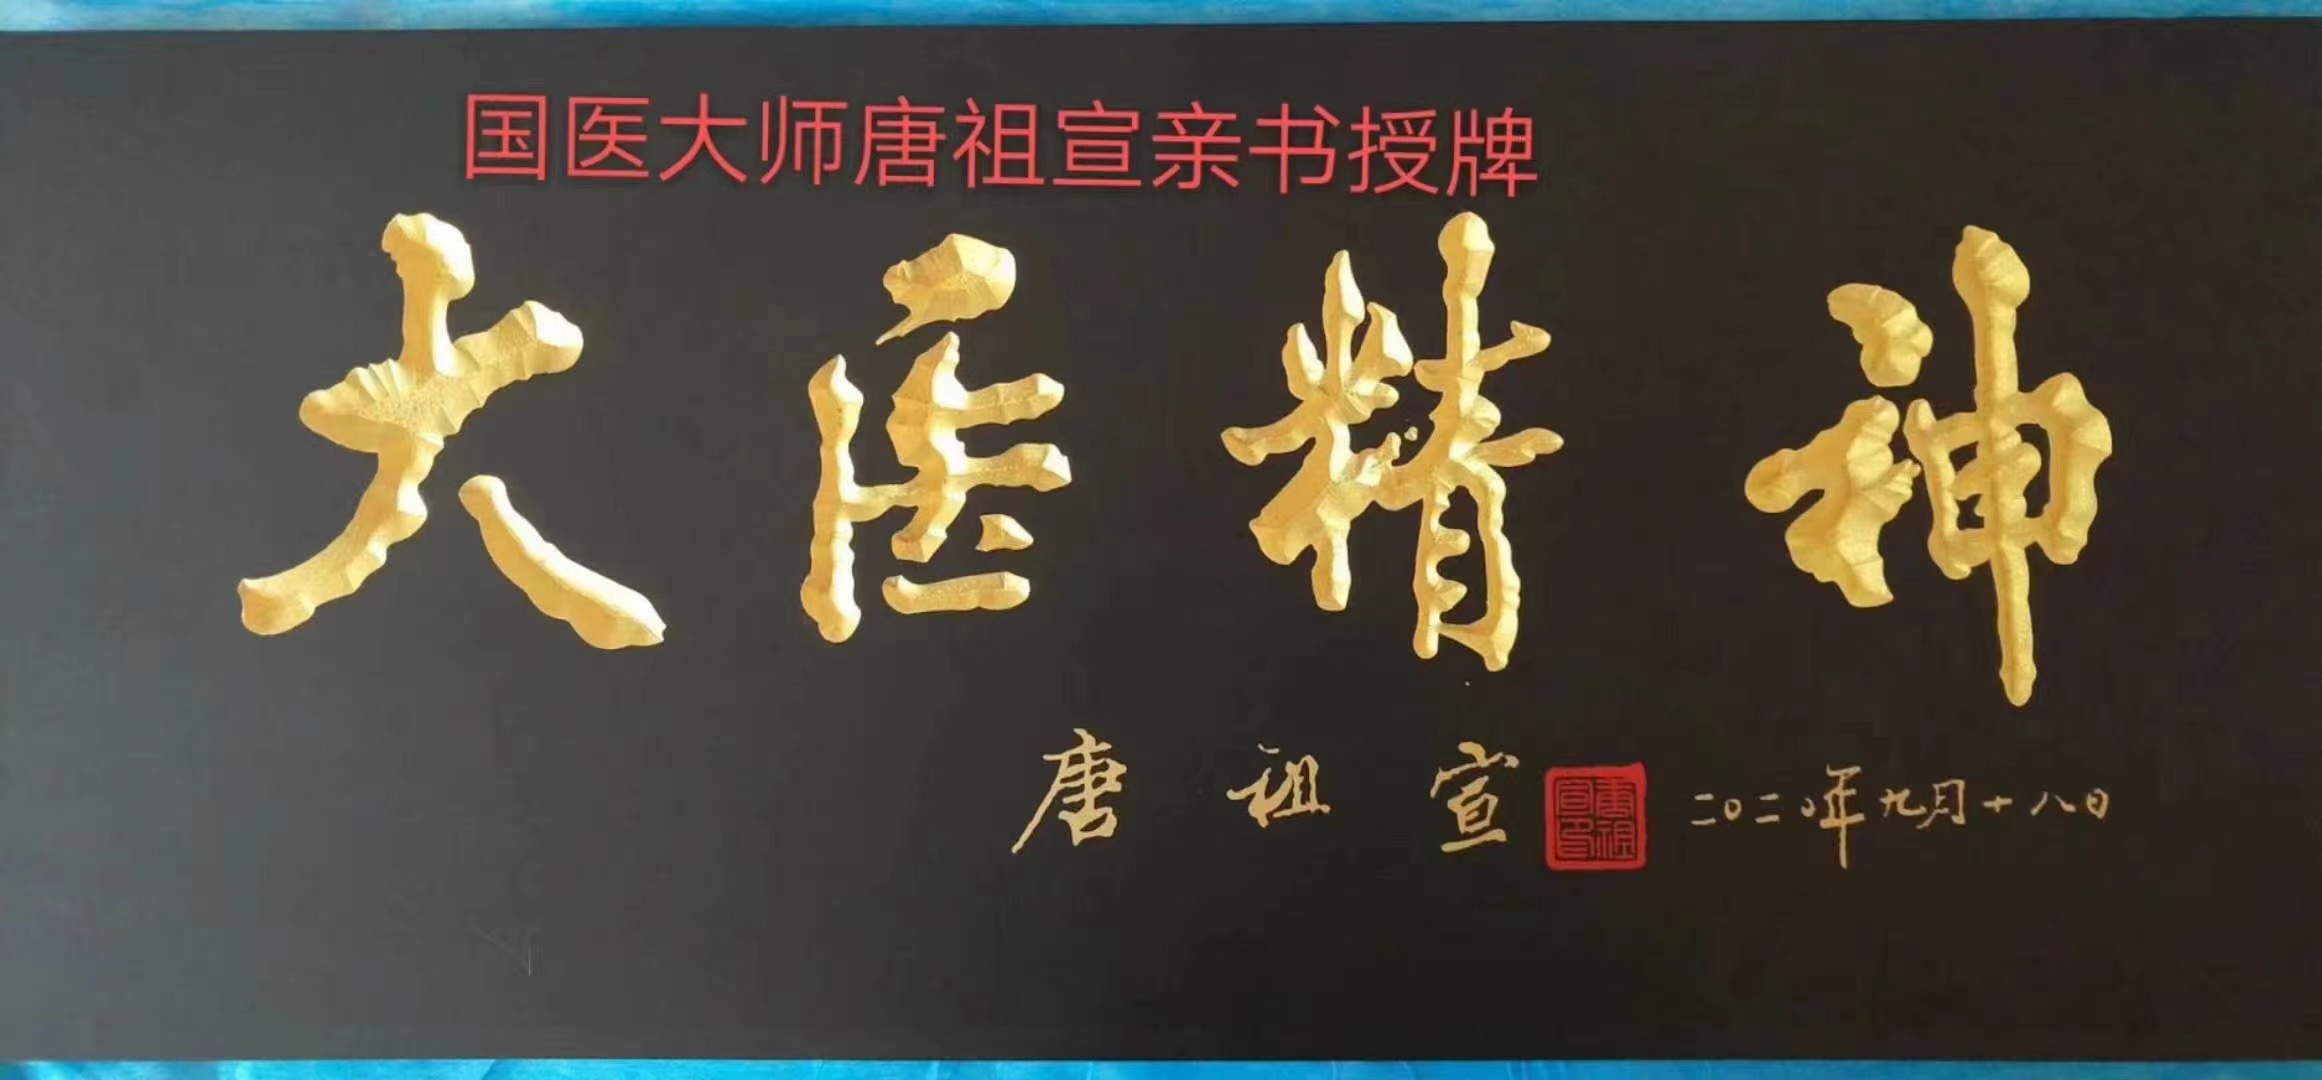 国医大师唐祖宣亲书授牌
大医精神
唐祖宣
唐祖宣印
二〇二〇年九月十八日